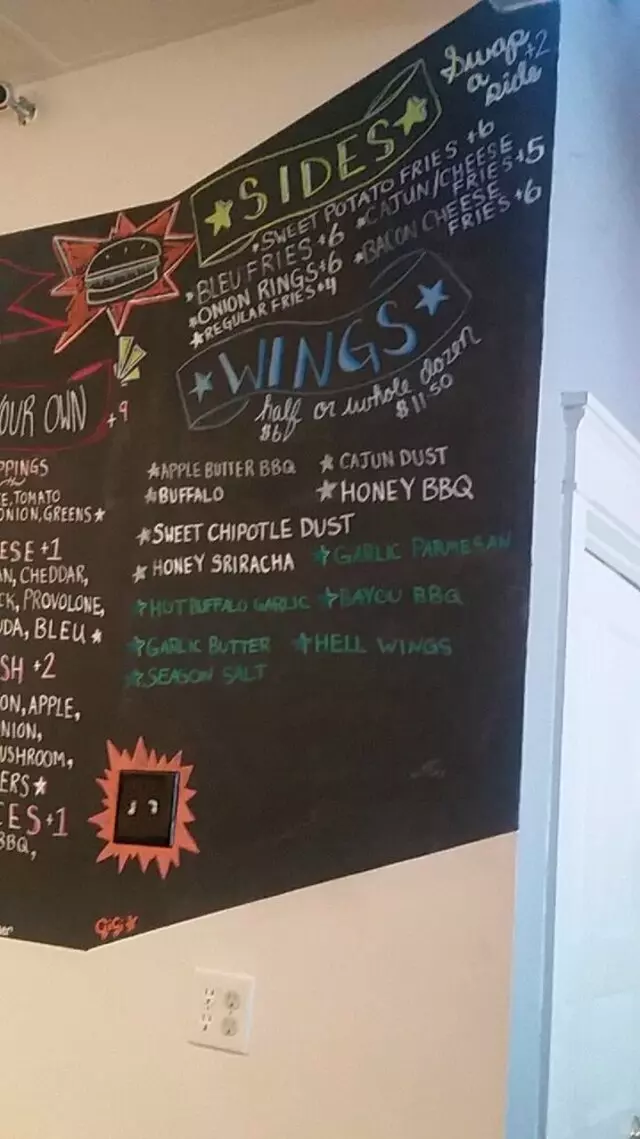 Swap +2
a
side
★SIDES★
★SWEET POTATO FRIES +6
★BLEU FRIES +6
★CAJUN/CHEESE
FRIES +5
★ONION RINGS +6
★BACON CHEESE
FRIES +6
★REGULAR FRIES +4
★WINGS★
half or whole dozen
$6 $11 50
★APPLE BUTTER BBQ ★CAJUN DUST
★BUFFALO ★HONEY BBQ
★SWEET CHIPOTLE DUST
★HONEY SRIRACHA ★GARLIC PARMESAN
★HOT BUFFALO GARLIC ★BAYOU BBQ
★GARLIC BUTTER ★HELL WINGS
★SEASON SALT
OUR OWN +9
PPINGS
E, TOMATO
ONION, GREENS★
ESE +1
AN, CHEDDAR,
CK, PROVOLONE,
UDA, BLEU★
SH +2
ON, APPLE,
NION,
USHROOM,
ERS★
CES +1
BBQ,
GiGi★